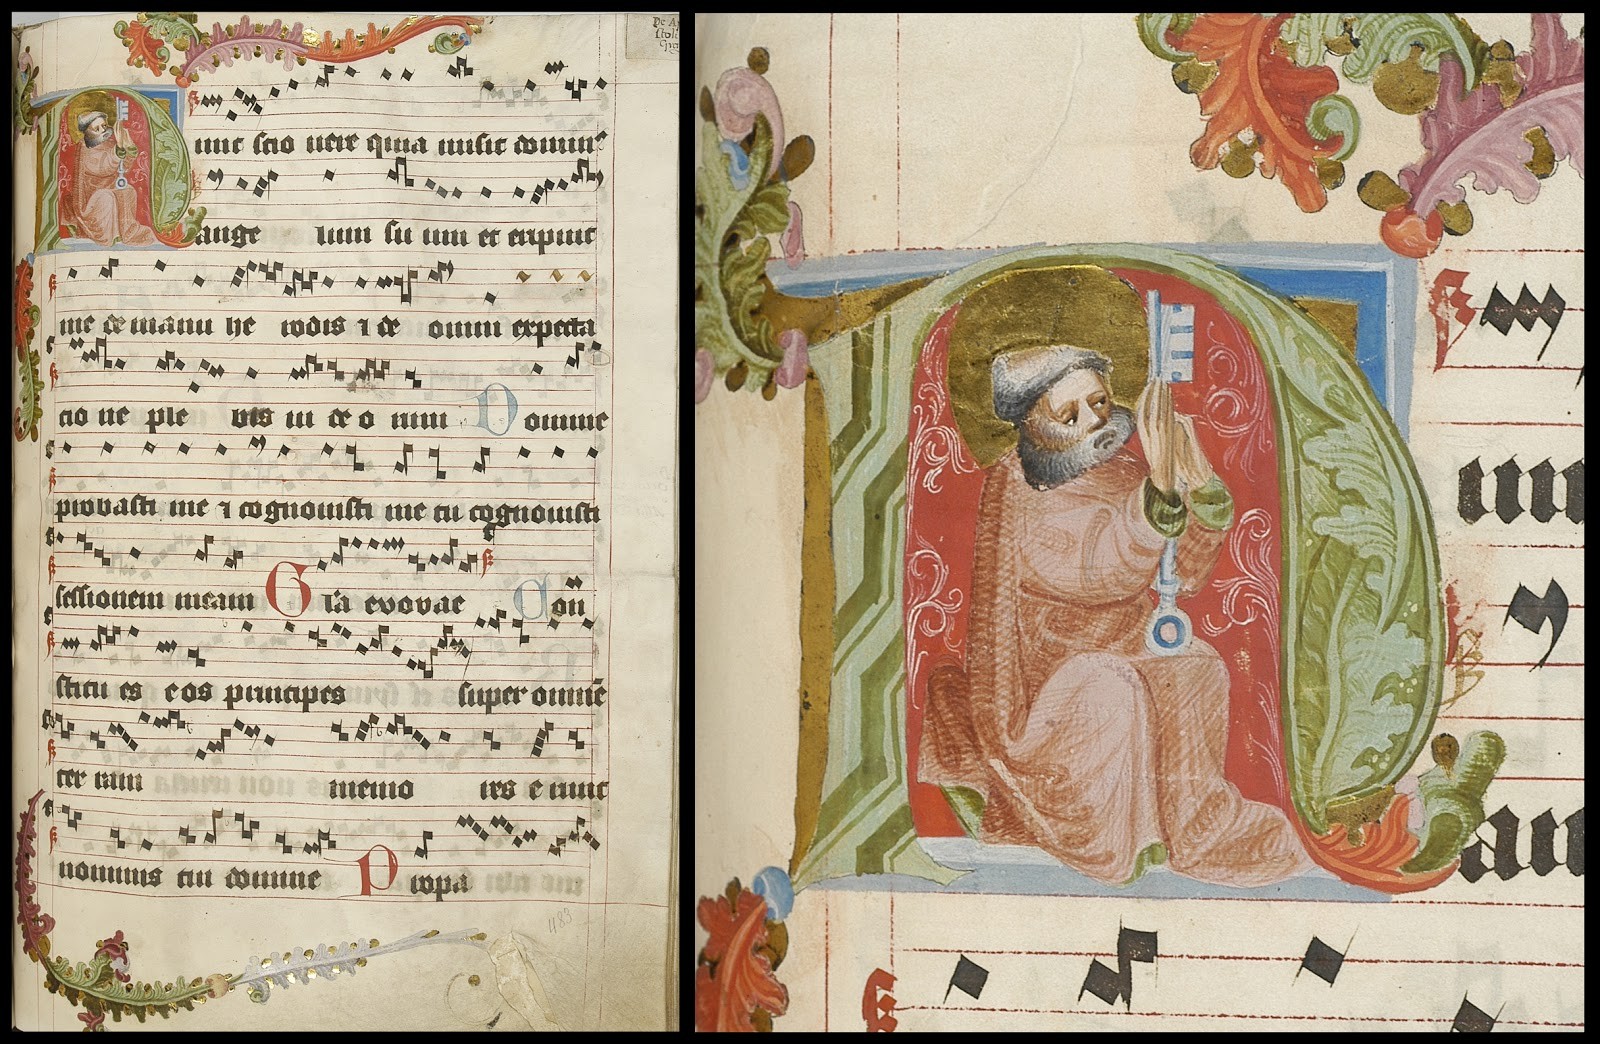 De A
stol
Nunc scio uere quia misit domin⁹
ange lum su um et eripuit
me de manu he rodis ⁊ de omni expecta
cio ne ple bis iu de o rum Domine
probasti me ⁊ cognouisti me tu cognouisti
sessionem meam G̅l̅ia evovae Con
stitu es e os principes super omnē
ter ram memo res e runt
nominis tui domine Propa
483